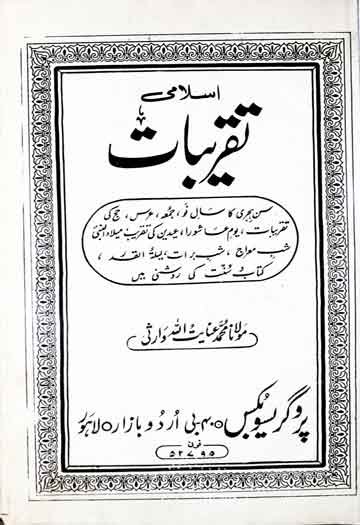 اسلامی
تقریبات
سن ہجری کا سال نو، جمعہ، عرس، حج کی
تقریبات، یوم عاشورا، عیدین کی تقریب میلاد النبیؐ
شب معراج، شب برات، لیلۃ القدر،
کتاب و سنت کی روشنی میں
مولانا محمد عنایت اللہ وارثی
پروگریسو بکس ۴۰-بی اردو بازار لاہور
فون
۵۲۷۹۵